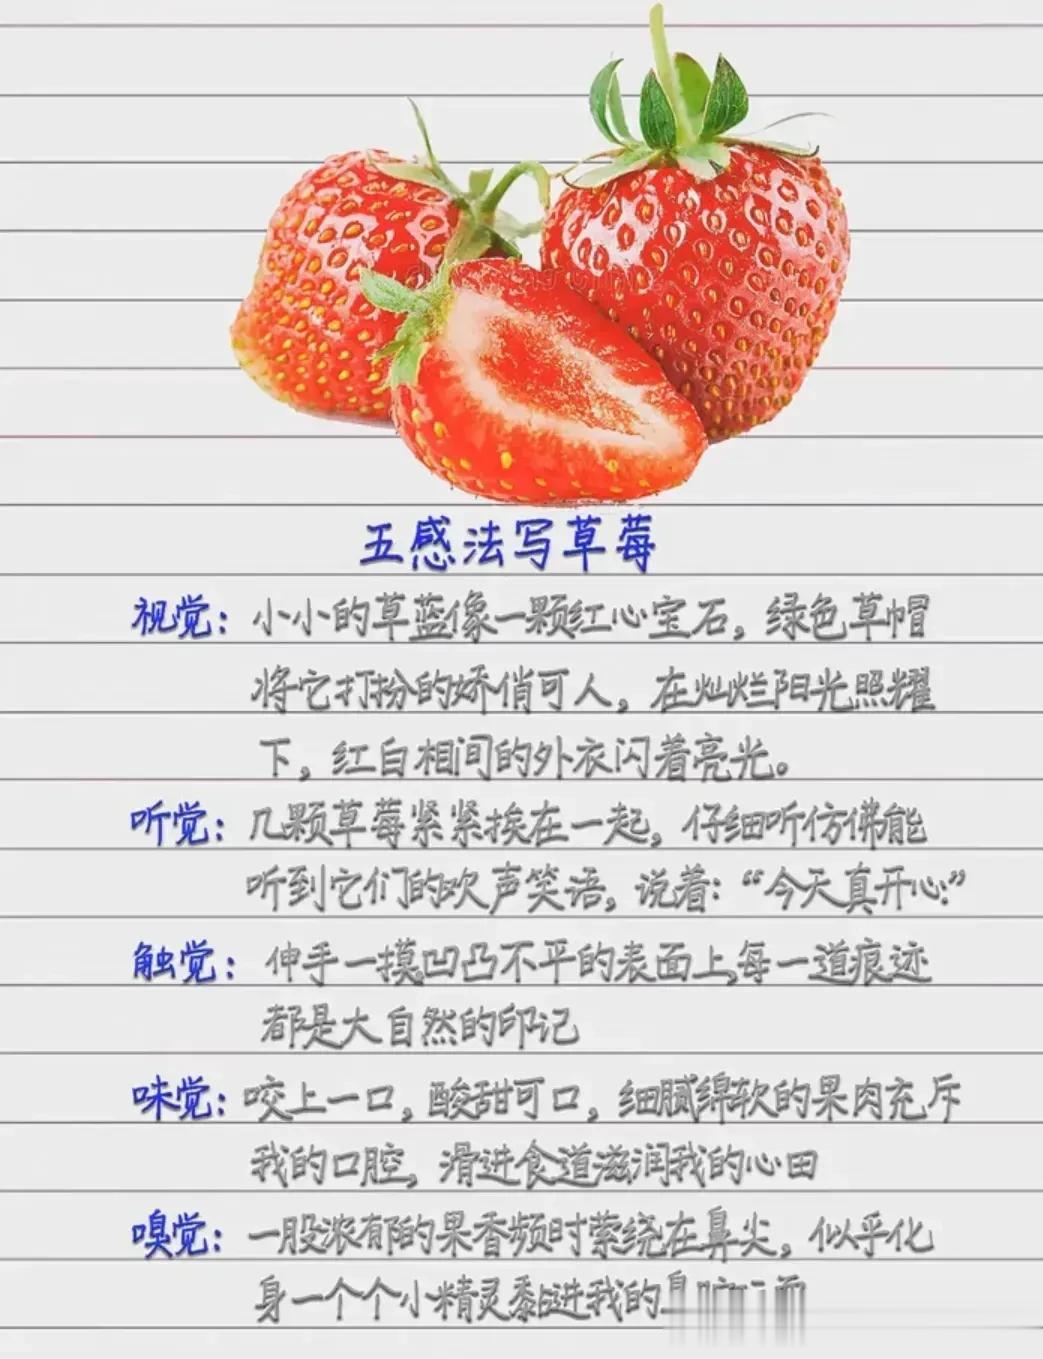 五感法写草莓
视觉：小小的草蓝像一颗红心宝石，绿色草帽
将它打扮的娇俏可人，在灿烂阳光照耀
下，红白相间的外衣闪着亮光。
听觉：几颗草莓紧紧挨在一起，仔细听仿佛能
听到它们的欢声笑语，说着：“今天真开心”
触觉：伸手一摸，凹凸不平的表面上，每一道痕迹
都是大自然的印记
味觉：咬上一口，酸甜可口，细腻绵软的果肉充斥
我的口腔，滑进食道滋润我的心田
嗅觉：一股浓郁的果香频时萦绕在鼻尖，似乎化
身一个个小精灵黏进我的